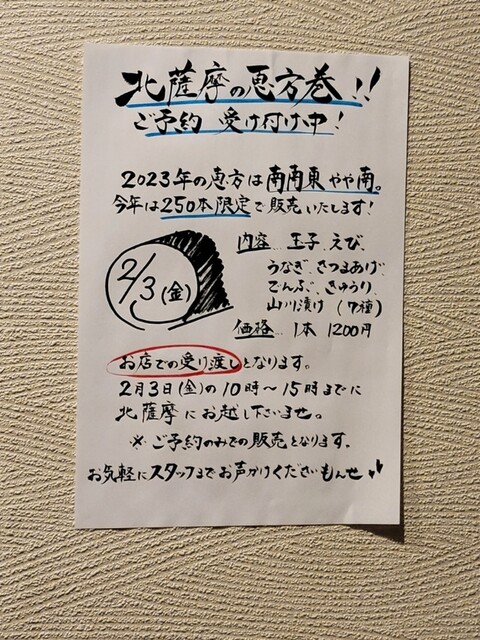 北薩摩の恵方巻!!
ご予約 受け付け中!
2023年の恵方は南南東やや南。
今年は250本限定で販売いたします!
2/3(金)
内容… 玉子、えび、
うなぎ、さつまあげ、
でんぶ、きゅうり、
山川漬け (7種)
価格… 1本 1200円
お店での受け渡しとなります。
2月3日(金)の10時〜15時までに
北薩摩にお越し下さいませ。
※ご予約のみでの販売となります。
お気軽にスタッフまでお声かけくださいもんせ